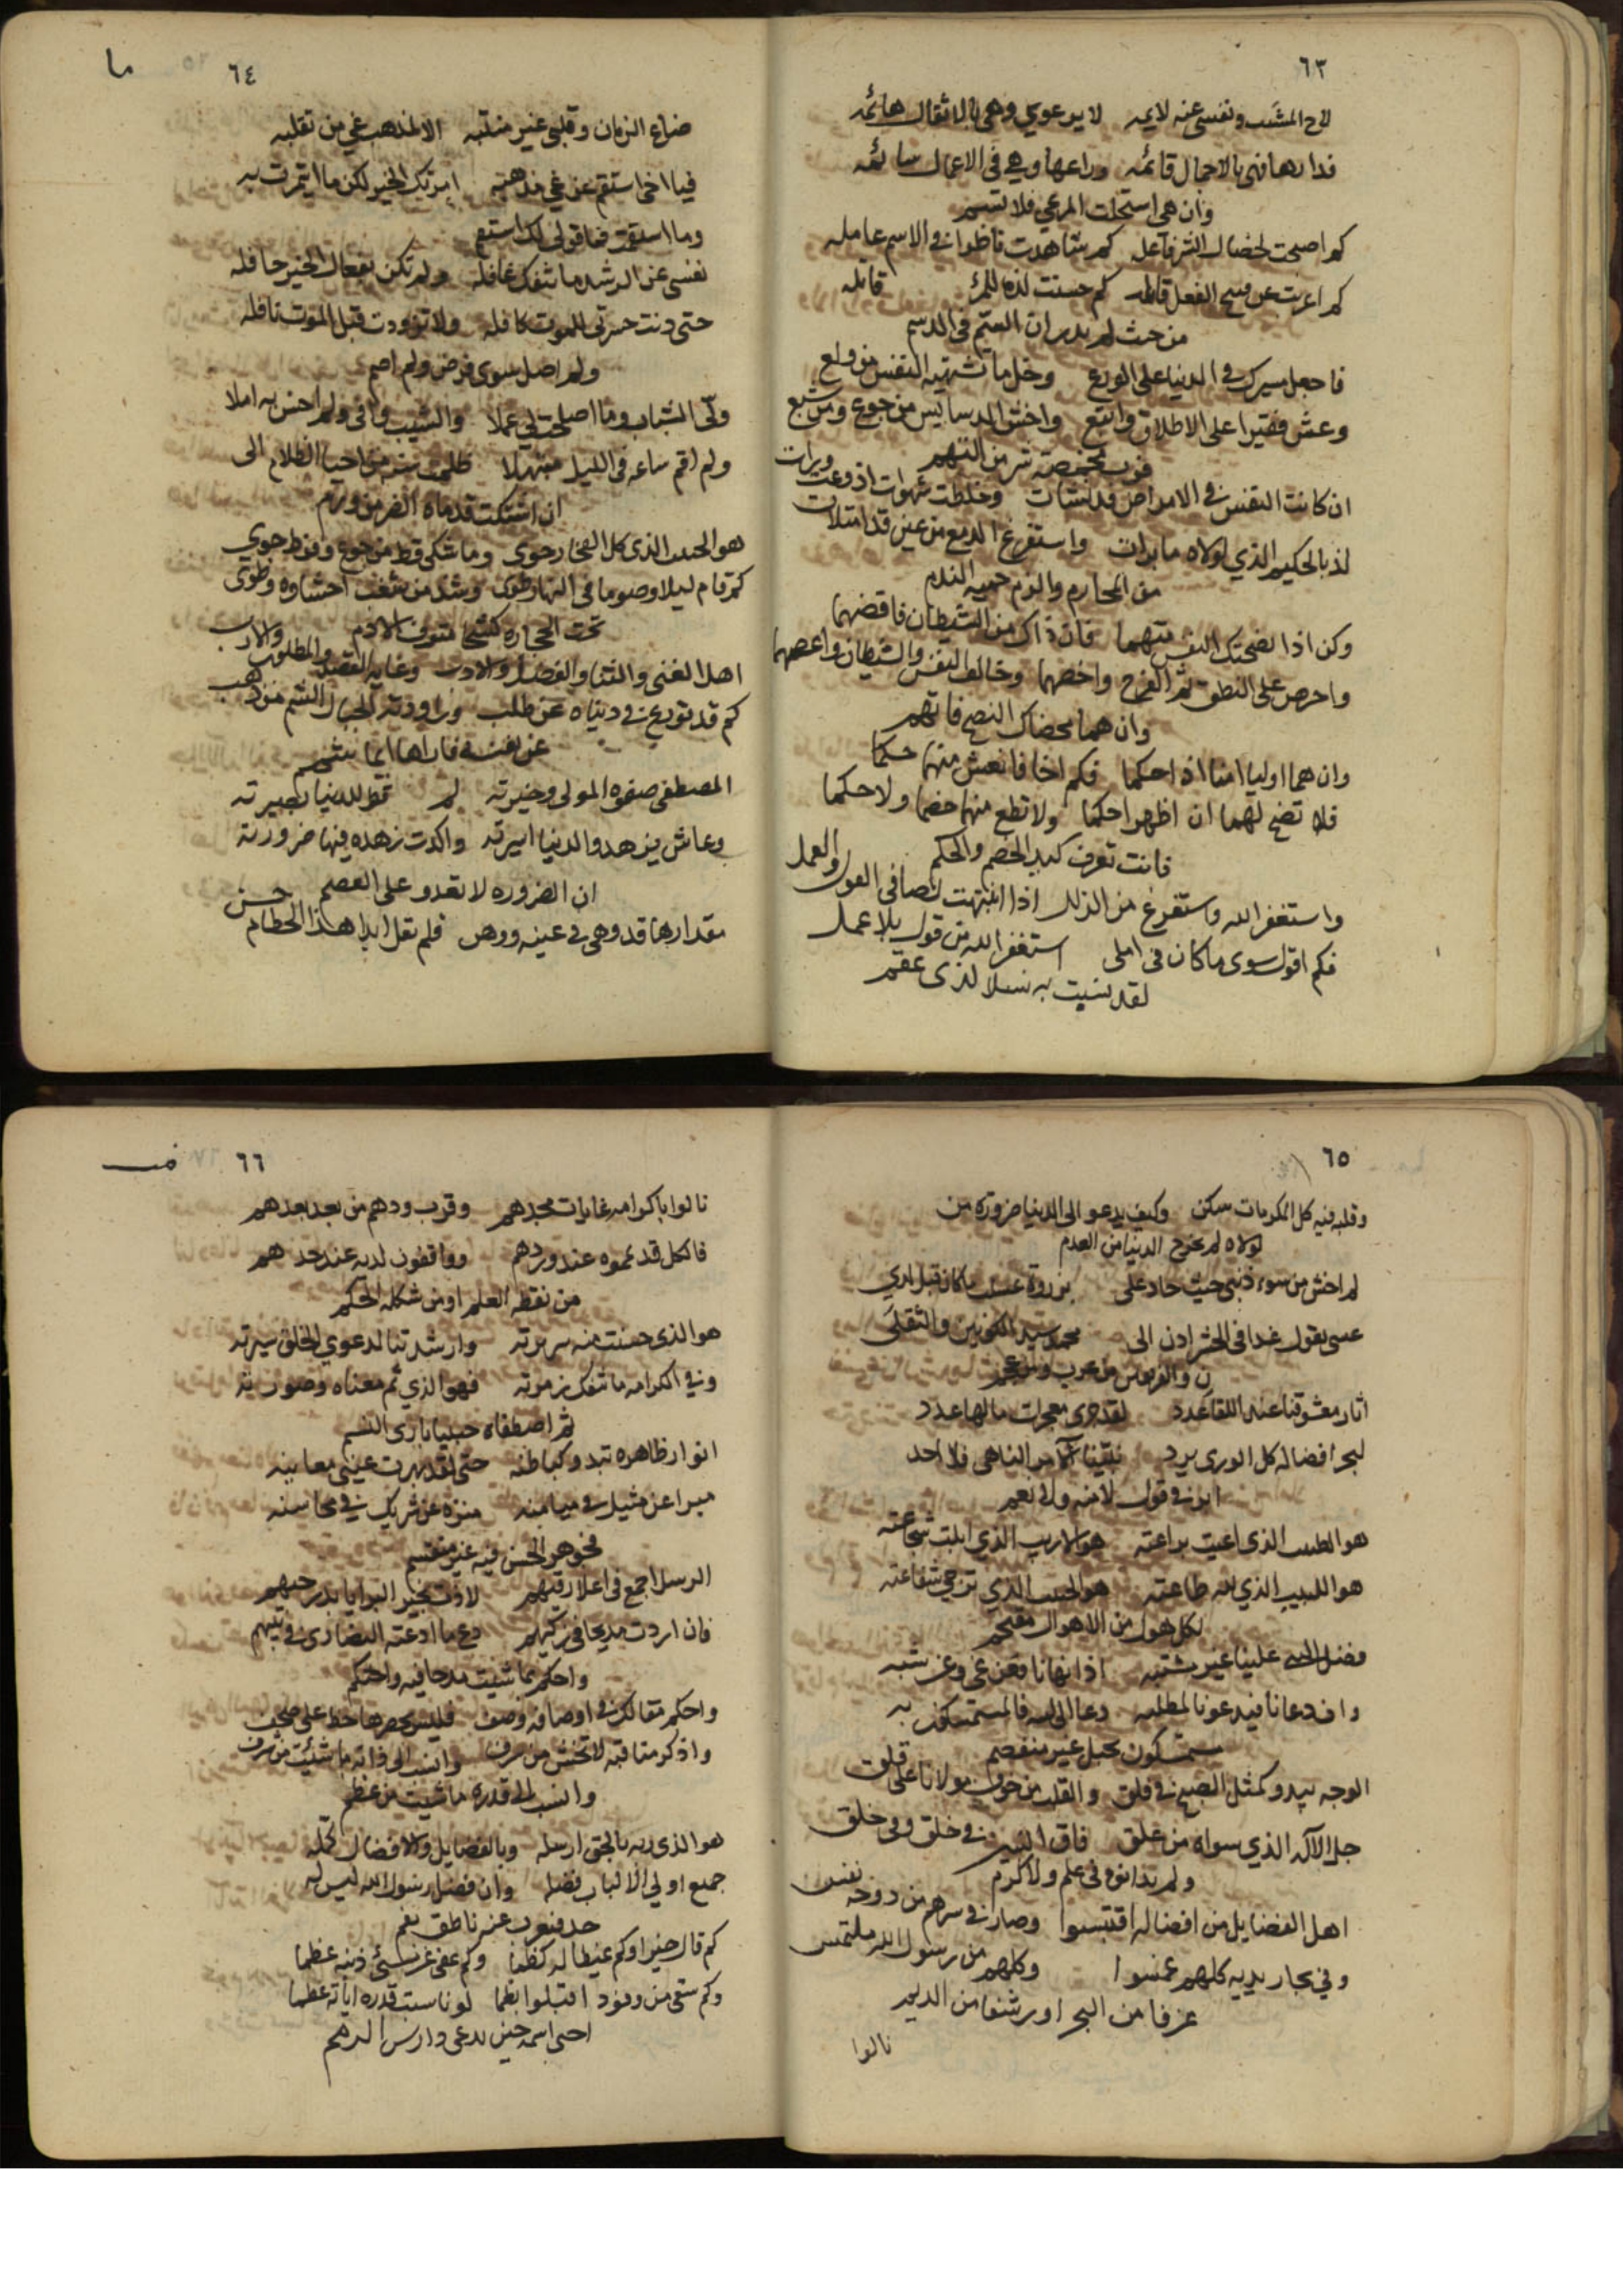 ٦٣
لاح المشيب ونفسي عنه لايمه لا يرعوي وهي بالاثقال هائمه
فدارها فهي بالاحمال قائمه وراعها وهي في الاعمال سائمه
وان هي استحلت المرعي فلا تسم
كم اصبحت لخصال الشر فاعله كم شاهدت ناظرا في الاسم عامله
كم اعربت عن قبيح الفعل قائله كم حسنت لذه للمرء قاتله
من حيث لم يدر ان السم في الدسم
فاجعل مسيرك في الدنيا على الورع وخل ما تشتهيه النفس من ولع
وعش فقيرا على الاطلاق واقتنع واخش الدسايس من جوع ومن شبع
فرب مخمصة شر من التخم
ان كانت النفس في الامراض قد نشات وخلطت شهوات اذ وعت ورات
لذ بالحكيم الذي لولاه ما برات واستفرغ الدمع من عين قد امتلات
من المحارم والزم حميه الندم
وكن اذا نصحتك النفس متهما فان ذاك من الشيطان فاقضهما
واحرص على النطق ثم الفرج واخصهما وخالف النفس والشيطان واعصهما
وان هما محضاك النصح فاتهم
وان هما اوليا امنا اذا حكما فكم اخا فانعش منهما حكما
فلا تضح لهما ان اظهرا حكما ولا تطع منهما خصما ولا حكما
فانت تعرف كيد الخصم والحكم
واستغفر الله واستفرغ من الزلل اذا انتهت نصا في القول والعمل
فكم اقول سوى ما كان في املي استغفر الله من قول بلا عمل
لقد نسبت به نسلا لذي عقم
٦٤
ما
ضاع الزمان وقلبي غير منتبه الا لمذهب غي من تقلبه
فيا اخي استقم عن غي مذهبه امرتك الخير لكن ما ائتمرت به
وما استقمت فما قولي لك استقم
نفسي عن الرشد ما تنفك غافله ولم تكن بفعال الخير حافله
حتى دنت حسرتي للموت كافله ولا تزودت قبل الموت نافله
ولم اصل سوى فرض ولم اصم
ولى الشباب وما اصلحت لي عملا والشيب وافى ولم احسن به املا
ولم اقم ساعه في الليل مبتهلا ظلمت سنه من احيا الظلام الى
ان اشتكت قدماه الضر من ورم
هو الحبيب الذي كل الفخار حوي وما شكى قط من جوع وفرط جوي
كم قام ليلا وصوما في النهار طوى وشد من سغب احشاوه وطوى
تحت الحجاره كشحا مترف الادم
اهل الغنى والثنا والفضل والادب وغايه القصد والمطلوب والارب
كم قد تورع في دنياه عن طلب وراودته الجبال الشم من ذهب
عن نفسه فاراها ايما شمم
المصطفى صفوه المولى وخيرته لم تمط للدنيا بصيرته
وعاش يزهد والدنيا اسيرته واكدت زهده فيها ضرورته
ان الضروره لا تعدو على العصم
مقدارها قد وهى في عينه ووهن فلم تقل ابدا هذا الحطام حسن
٦٥
وقلبه فيه كل المكرمات سكن وكيف يدعو الى الدنيا ضرورة من
لولاه لم تخرج الدنيا من العدم
لم اخش من سوء ذنبي حيث جاد علي بزورة عسل ما كان قبل لدي
عسى يقول غدا في الحشر ادن الى محمد سيد الكونين والثقلي
ن والفريقين من عرب ومن عجم
اثار معشوقنا عند اللقا عدد لقد حوى معجزات ما لها عدد
لبحر افضاله كل الورى يرد نبينا الآمر الناهي فلا احد
ابر في قول لا منه ولا نعم
هو الطبيب الذي اعيت براعته هو الاريب الذي ابلت شجاعته
هو اللبيب الذي لله طاعته هو الحبيب الذي ترجى شفاعته
لكل هول من الاهوال مقتحم
فضل الحبيب علينا غير مشتبه اذ انهانا فعن غي وعن شبه
واذ دعانا فيدعونا لمطلبه دعا الى الله فالمستمسكون به
مستمسكون بحبل غير منفصم
الوجه يبدو كمثل الصبح في فلق والقلب من خوف مولانا على قلق
جل الآله الذي سواه من علق فاق النبيين في خلق وفي خلق
ولم يدانوه في علم ولا كرم
اهل الفضايل من افضاله اقتبسوا وصار في سرهم من دوحه نفس
وفي بحار يديه كلهم غمسوا وكلهم من رسول الله ملتمس
غرفا من البحر او رشفا من الديم
نالوا
٦٦
نالوا باكرامه غايات مجدهم وقرب ودهم من بعد بعدهم
فالكل قد يمموه عند وردهم وواقفون لديه عند حدهم
من نقطه العلم او من شكله الحكم
هو الذي حسنت منه سريرته وارشدتنا لدعوي الخلق سيرته
وفي الكرامه ما تنفك زمرته فهو الذي تم معناه وصورته
ثم اصطفاه حبيبا باري النسم
انوار ظاهره تبدو كباطنه حتى لقد بهرت عيني معاينه
مبرا عن مثيل في ميامنه منزه عن شريك في محاسنه
فجوهر الحسن فيه غير منقسم
الرسل اجمع في اعلا رقيهم لاذت بخير البرايا بدر حيهم
فان اردت مديحا في زكيهم دع ما ادعته النصارى في نبيهم
واحكم بما شيت مدحا فيه واحتكم
واحكم مقالك في اوصافه وصف فليس يحصرها خط على صحف
واذكر مناقبه لا تخش من سرف وانسب الى ذاته ما شئت من شرف
وانسب الى قدره ما شيت من عظم
هو الذي ربه بالحق ارسله وبالفضايل والافضال كمله
جميع اولي الالباب فضله وان فضل رسول الله ليس له
حد فيعرب عنه ناطق بفم
كم قال خيرا وكم غيظا له كظما وكم عفى عن مسئ ذنبه عظما
وكم سقى من وفود اقبلوا بظما لو ناسبت قدره اياته عظما
احيى اسمه حين يدعى دارس الرمم